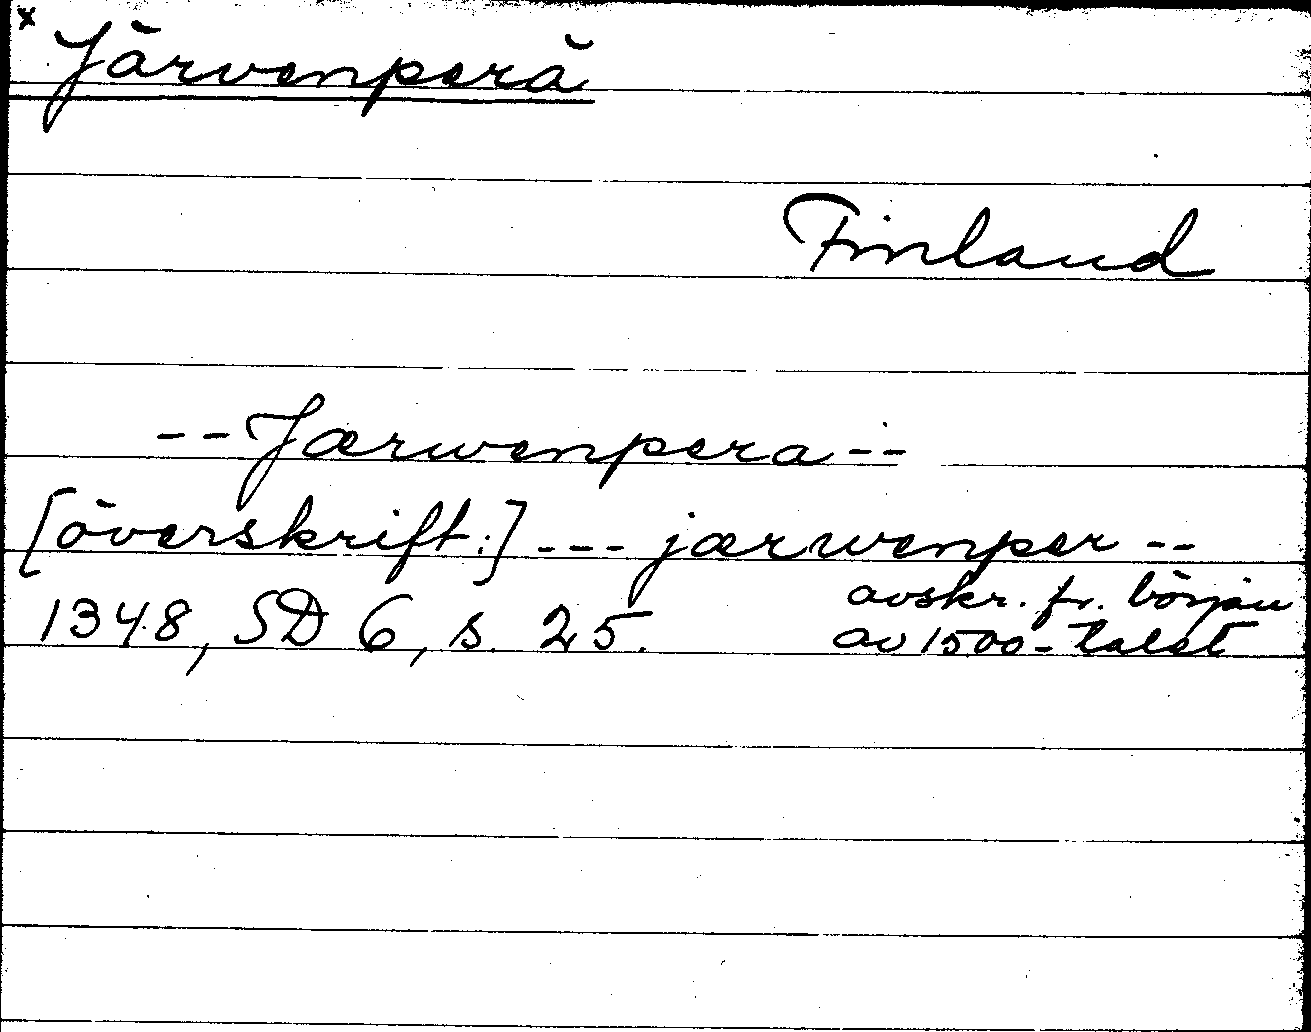 x
Järvenperä
Finland
-- Jærwenpera --
[överskrift:] --- jærwenper --
1348, SD 6, s. 25. avskr. fr. början
av 1500-talet